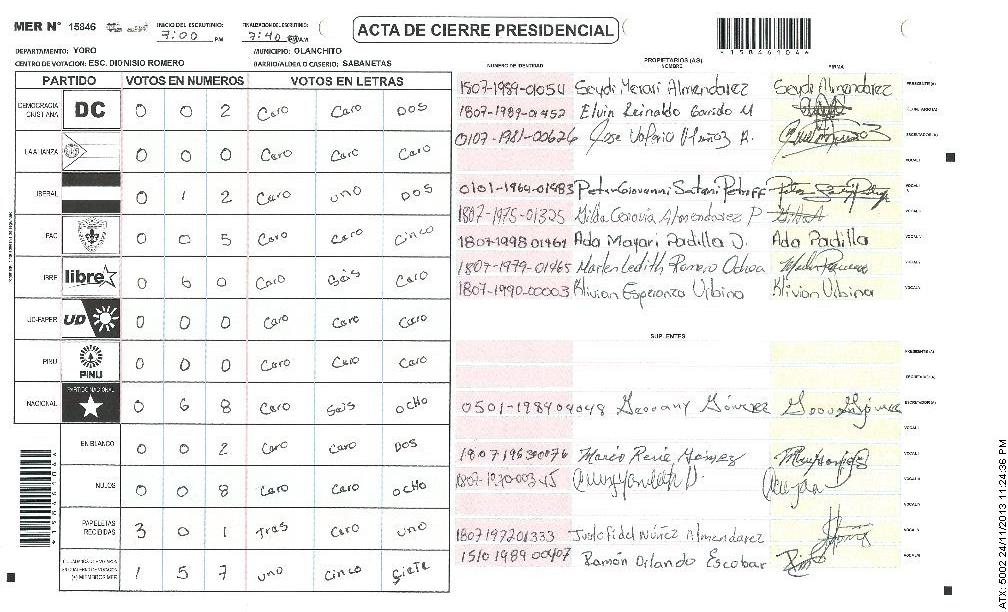 MER N° 15846 INICIO DEL ESCRUTINIO: 7:00 PM FINALIZACION DEL ESCRUTINIO: 7:40
ACTA DE CIERRE PRESIDENCIAL
*15846104*
DEPARTAMENTO: YORO MUNICIPIO: OLANCHITO
CENTRO DE VOTACION: ESC. DIONISIO ROMERO BARRIO/ALDEA O CASERIO: SABANETAS
PARTIDO VOTOS EN NUMEROS VOTOS EN LETRAS
DEMOCRACIA CRISTIANA DC 0 0 2 Cero Cero DOS
LA ALIANZA 0 0 0 Cero Cero Cero
LIBERAL 0 1 2 Cero uno DOS
PAC 0 0 5 Cero Cero Cinco
LIBRE libre 0 6 0 Cero Seis Cero
UD-FAPER UD 0 0 0 Cero Cero Cero
PINU PINU 0 0 0 Cero Cero Cero
NACIONAL PARTIDO NACIONAL 0 6 8 Cero Seis OCHO
EN BLANCO 0 0 2 Cero Cero DOS
NULOS 0 0 8 Cero Cero OCHO
PAPELETAS RECIBIDAS 3 0 1 Tres Cero uno
1 5 7 uno Cinco Siete
*15846104*
PROPIETARIOS (AS)
NUMERO DE IDENTIDAD NOMBRE FIRMA
1807-1989-01054 Seydi Merari Almendarez Seydi Almendarez PRESIDENTE(A)
1807-1989-01452 Elvin Reinaldo Garido M
0107-1981-00626 Jose Valerio Muñoz A. ESCRUTADOR(A)
VOCAL I
0101-1964-01583 Peter Giovanni Satani Petroff
1807-1975-01325 Gilda Almendarez P
1807-1998 01461 Ada Mayari Padilla D. Ada Padilla
1807-1979-01465 Marlen Ledith Romero Ochoa
1807-1990-00003 Klivian Esperanza Urbina Klivian Urbina
SUPLENTES
PRESIDENTE (A)
SECRETARIO(A)
0501-1984 04048 Geovany Gómez ESCRUTADOR(A)
VOCAL I
1807 1963 00076 Marco René Gómez
1807-1970-00345
1807197201333 Justo Fidel Núñez Almendarez
1510 1989 00407 Ramón Orlando Escobar
ATX: 5002 24/11/2013 11:24:36 PM